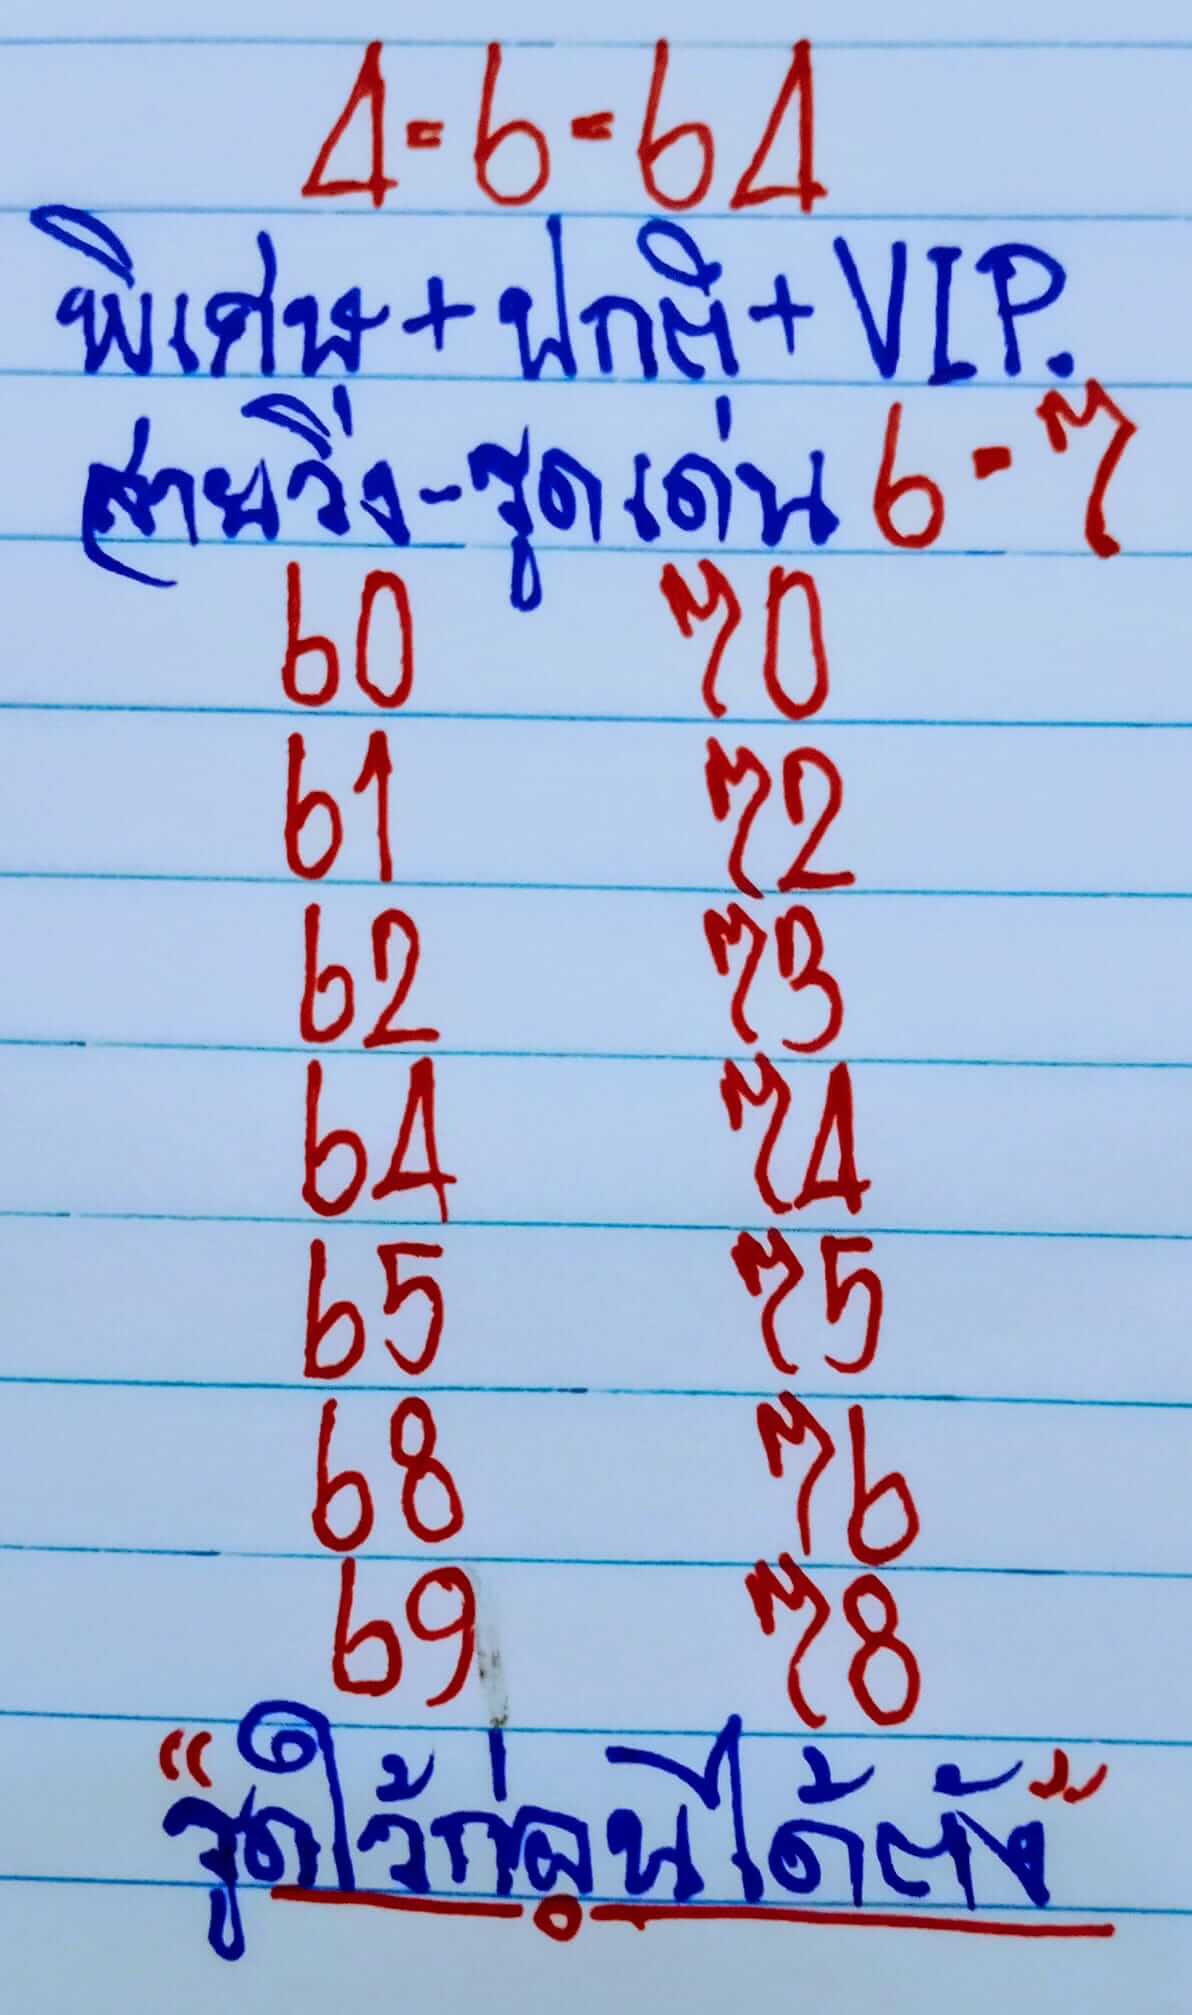 4-6-64
พิเศษ+ปกติ+VIP.
สายวิ่ง-รูดเด่น 6-7
60 70
61 72
62 73
64 74
65 75
68 76
69 78
"รูดใว้ก่อนได้ตัง"